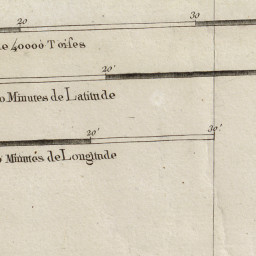 20 30
de 40000 Toises
20'
0 Minutes de Latitude
20' 30'
Minutes de Longitude